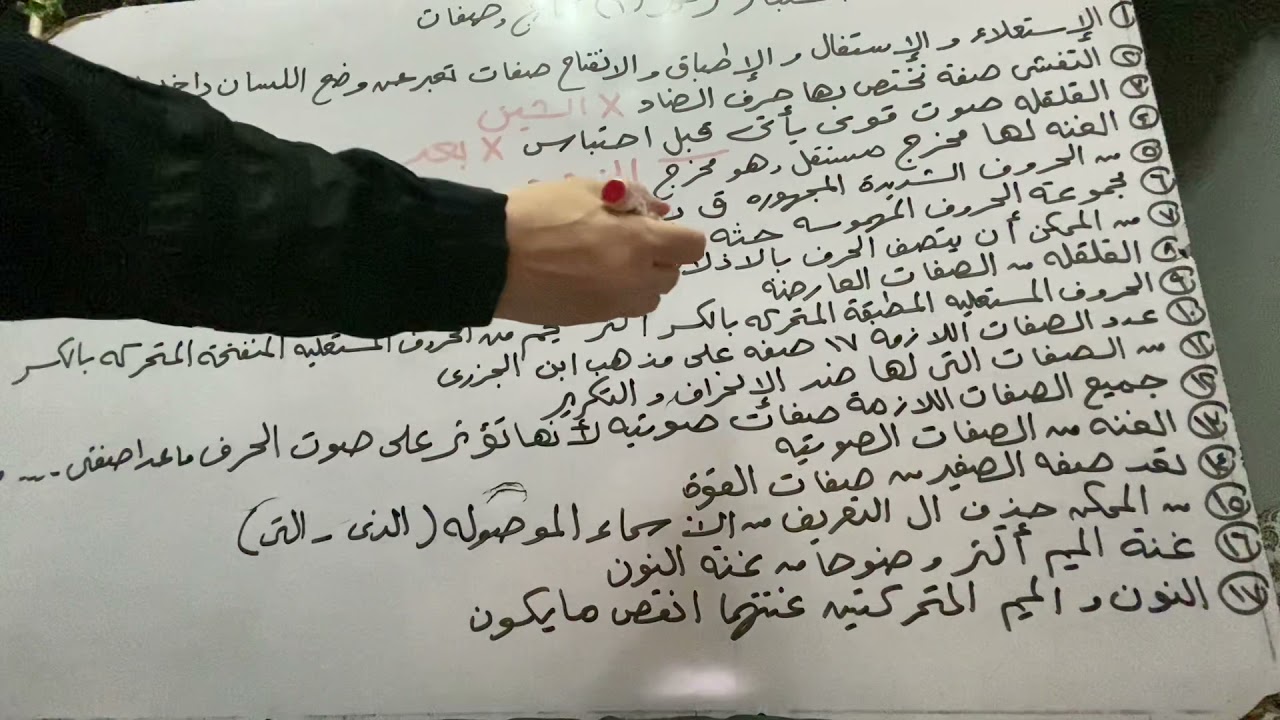 وصفات
١ الإستعلاء و الإستفال و الإطباق و الانفتاح صفات تعبر عن وضع اللسان
٢ التفشى صفة تختص بها حرف الضاد X الشين
٣ القلقله صوت قوى يأتى قبل احتباس X بعد
٤ الغنه لها مخرج مستقل وهو مخرج
٥ من الحروف الشديدة المجهوره ق
٦ مجموعة الحروف المهموسه حثه
٧ من الممكن أن يتصف الحرف
٨ القلقله من الصفات العارضه
٩ الحروف المستعليه المطبقة المتحركه بالكسر من الحروف المستعليه المنفتحة المتحركه بالكسر
١٠ عدد الصفات اللازمة ١٧ صفه على مذهب ابن الجزرى
من الصفات التى لها ضد الإنحراف و التكرير
١٢ جميع الصفات اللازمة صفات صوتيه لأنها تؤثر على صوت الحرف ماعدا صفتى ...
١٣ الغنه من الصفات الصوتيه
١٤ صفه الصفير من صفات القوة
١٥ من الممكن حذف ال التعريف من الأسماء الموصوله ( الذى - التى )
١٦ غنة الميم أكثر وضوحا من غنه النون
١٧ النون و الميم المتحركتين غنتهما انقص مايكون